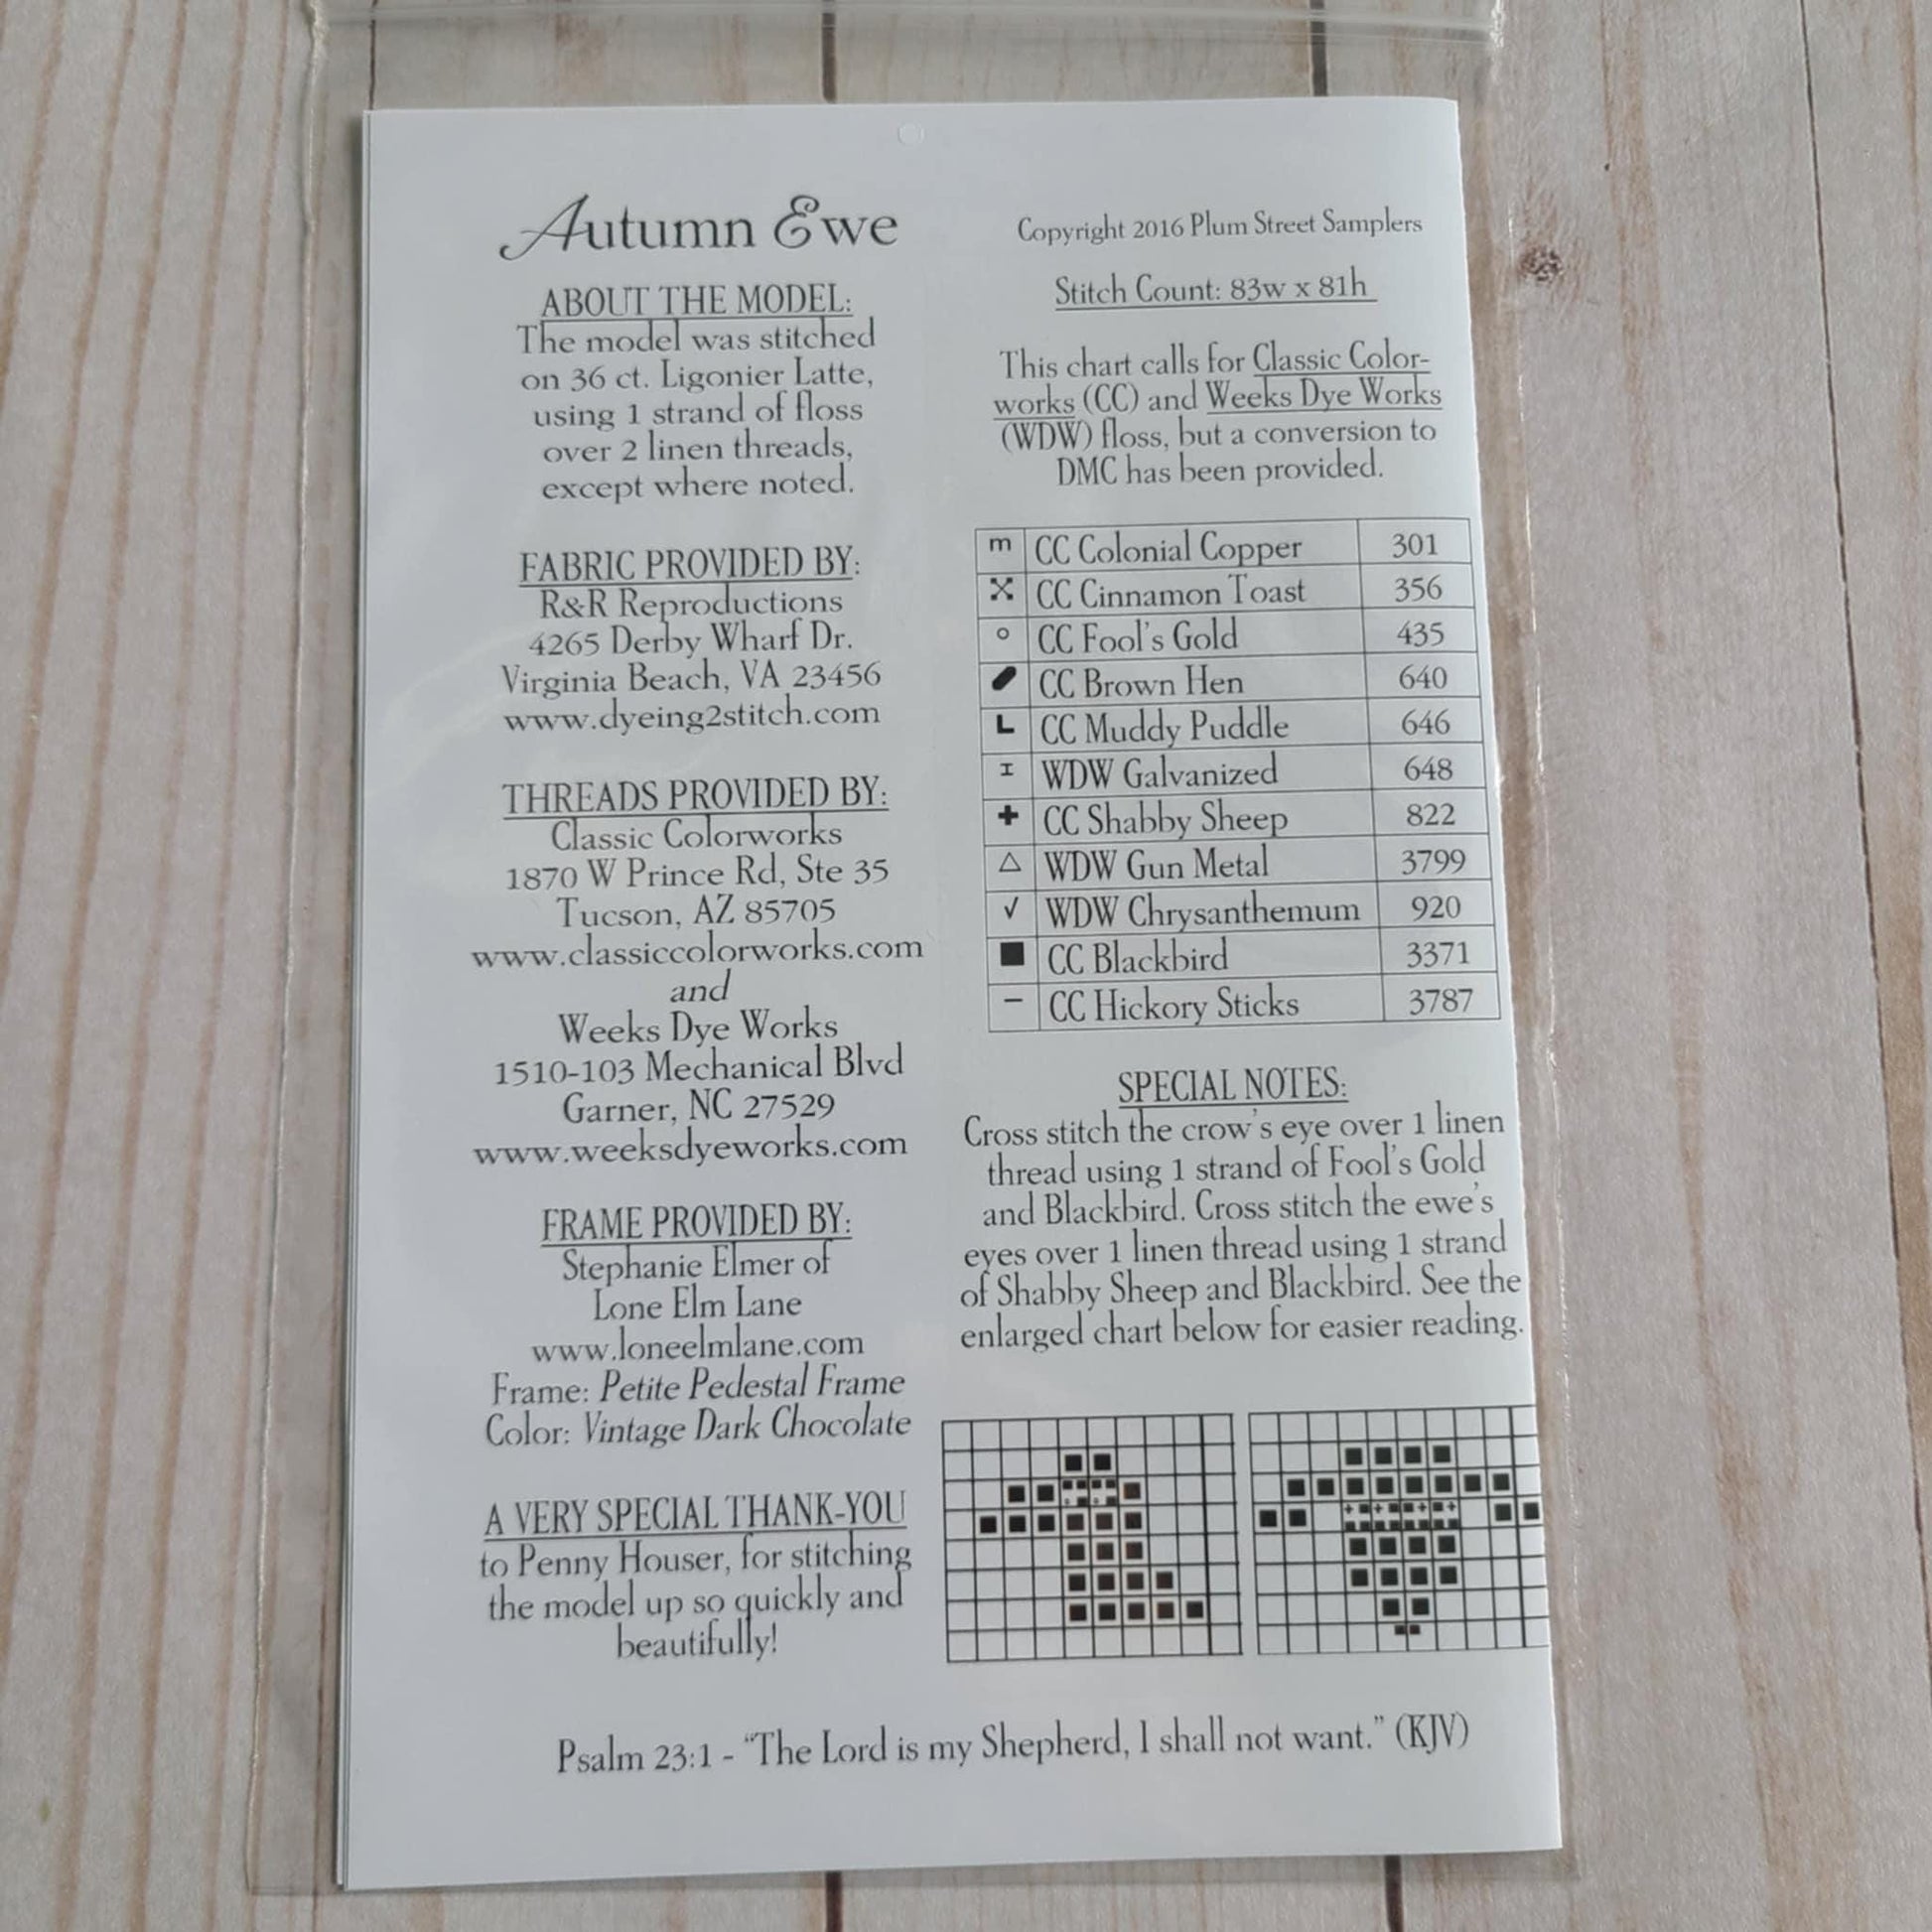 Autumn Ewe
ABOUT THE MODEL:
The model was stitched
on 36 ct. Ligonier Latte,
using 1 strand of floss
over 2 linen threads,
except where noted.
FABRIC PROVIDED BY:
R&R Reproductions
4265 Derby Wharf Dr.
Virginia Beach, VA 23456
www.dyeing2stitch.com
THREADS PROVIDED BY:
Classic Colorworks
1870 W Prince Rd, Ste 35
Tucson, AZ 85705
www.classiccolorworks.com
and
Weeks Dye Works
1510-103 Mechanical Blvd
Garner, NC 27529
www.weeksdyeworks.com
FRAME PROVIDED BY:
Stephanie Elmer of
Lone Elm Lane
www.loneelmlane.com
Frame: Petite Pedestal Frame
Color: Vintage Dark Chocolate
A VERY SPECIAL THANK-YOU
to Penny Houser, for stitching
the model up so quickly and
beautifully!
Copyright 2016 Plum Street Samplers
Stitch Count: 83w x 81h
This chart calls for Classic Color-
works (CC) and Weeks Dye Works
(WDW) floss, but a conversion to
DMC has been provided.
m CC Colonial Copper 301
CC Cinnamon Toast 356
CC Fool's Gold 435
CC Brown Hen 640
L CC Muddy Puddle 646
I WDW Galvanized 648
+ CC Shabby Sheep 822
△ WDW Gun Metal 3799
√ WDW Chrysanthemum 920
■ CC Blackbird 3371
– CC Hickory Sticks 3787
SPECIAL NOTES:
Cross stitch the crow's eye over 1 linen
thread using 1 strand of Fool's Gold
and Blackbird. Cross stitch the ewe's
eyes over 1 linen thread using 1 strand
of Shabby Sheep and Blackbird. See the
enlarged chart below for easier reading.
Psalm 23:1 - "The Lord is my Shepherd, I shall not want." (KJV)